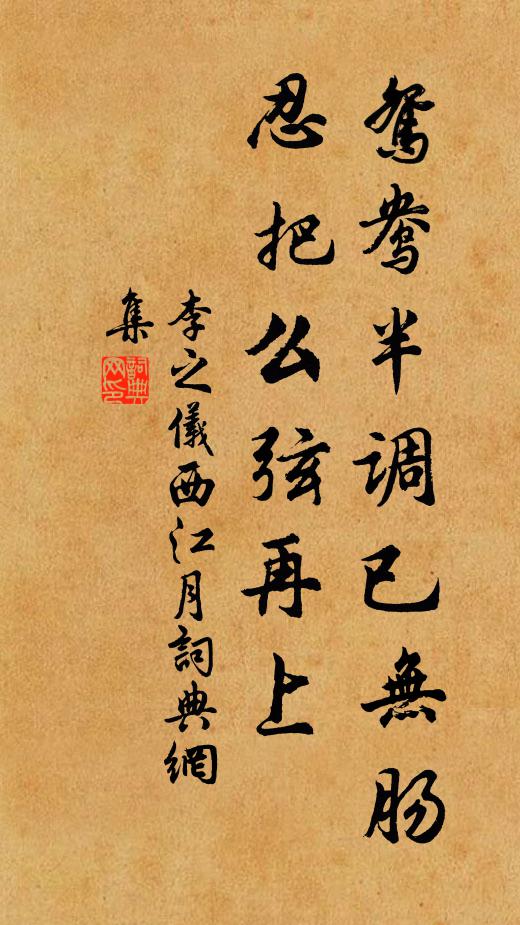 鴛鴦半调已無肠
忍把么弦再上
李之儀西江月詞典網
集
詞典网印